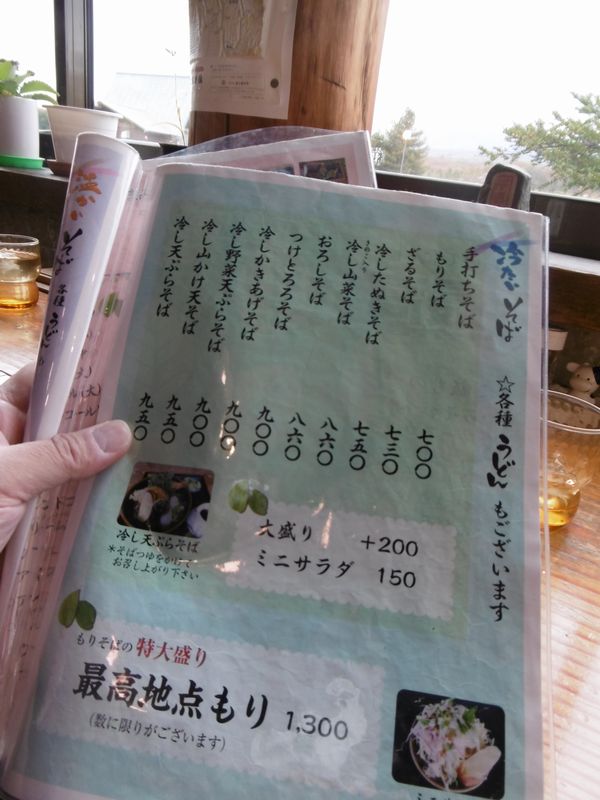 冷たいそば
☆各種うどんもございます
手打ちそば
もりそば 七〇〇
ざるそば 七三〇
冷したぬきそば 七五〇
きのこ入り
冷し山菜そば 八六〇
おろしそば 八六〇
つけとろろそば 九〇〇
冷しかきあげそば 九〇〇
冷し野菜天ぷらそば 九〇〇
冷し山かけ天そば 九五〇
冷し天ぷらそば 九五〇
冷し天ぷらそば
＊そばつゆをかけて
お召し上がり下さい
大盛り +200
ミニサラダ 150
もりそばの特大盛り
最高地点もり 1,300
(数に限りがございます)
温かいそば
各種うどん